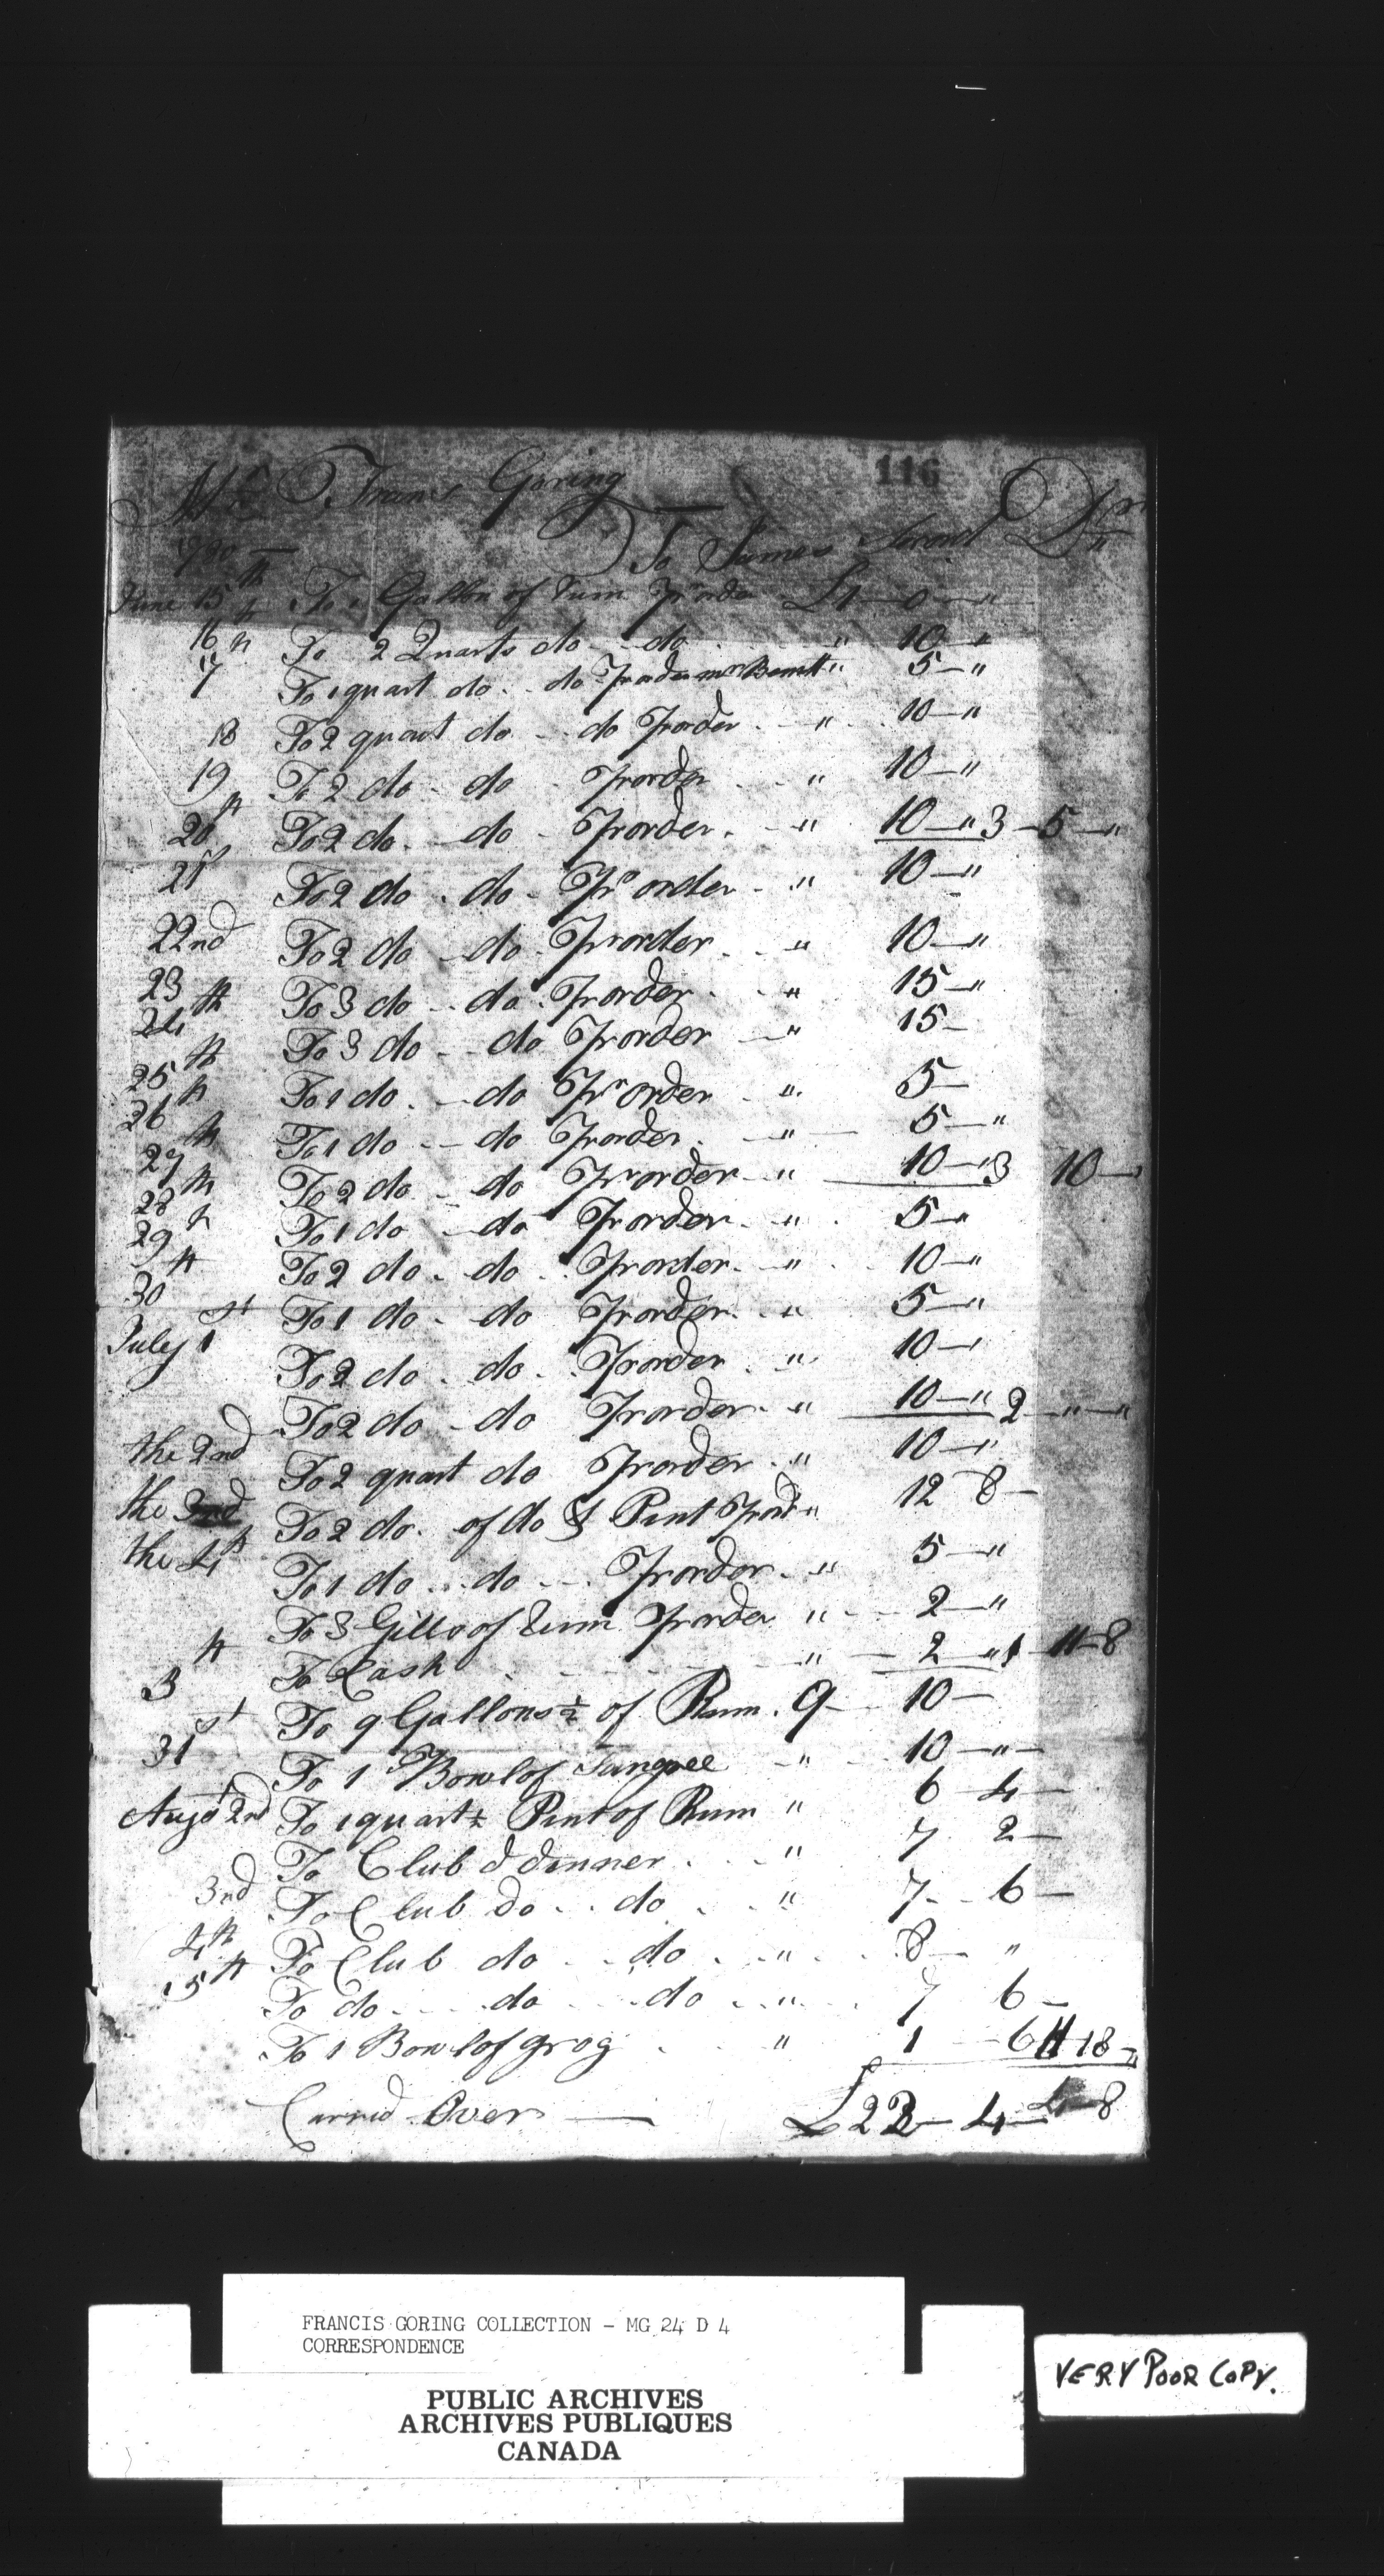 116
Mr Frans Goring Dr
To James Secord
1790 —
June 15th To 1 Gallon of Rum Pr order £1 — 0 — "
16th To 2 Quarts do - do " 10 — "
17 To 1 quart do - do Pr order mr " 5 — "
18 To 2 quart do - do Pr order - " 10 — "
19 To 2 do - do - Pr order " 10 — "
20th To 2 do - do - Pr order - " 10 — " 3 — 5 — "
21st To 2 do - do - Pr order - " 10 — "
22nd To 2 do - do - Pr order - " 10 — "
23 To 3 do - do - Pr order - " 15 — "
24th To 3 do - do Pr order - " 15 —
25th To 1 do - do Pr order - " 5 —
26th To 1 do - do Pr order - " 5 — "
27th To 2 do - do Pr order - " 10 — " 3 10 —
28th To 1 do - do Pr order - " 5 — "
29th To 2 do - do - Pr order - " 10 — "
30th To 1 do - do Pr order - " 5 — "
July 1st To 2 do - do - Pr order - " 10 — "
To 2 do - do Pr order - " 10 — " 2 — " — "
the 2nd To 2 quart do Pr order - " 10 — "
the 3rd To 2 do - of do & Pint Pr ord " 12 8 —
the 4th To 1 do - do - Pr order - " 5 — "
To 3 Gills of Rum Pr order " - 2 — "
To Cash " — 2 " 1 — 11 — 8
3th To 9 Gallons ½ of Rum . 9 — 10 —
31st To 1 Bowl of Sangree - " - 10 — " —
Augst 2nd To 1 quart ½ Pint of Rum " 6 4 —
To Club & dinner - " 7 2 —
3rd To Club do - do - " 7 - 6 —
4th To Club do - do - " - 8 — "
5th To do - do - do - " - 7 6 —
To 1 Bowl of grog - " 1 — 6 11 18 — "
Carried Over — £22 — 4 — 8
FRANCIS GORING COLLECTION - MG 24 D 4
CORRESPONDENCE
PUBLIC ARCHIVES
ARCHIVES PUBLIQUES
CANADA
VERY POOR COPY.